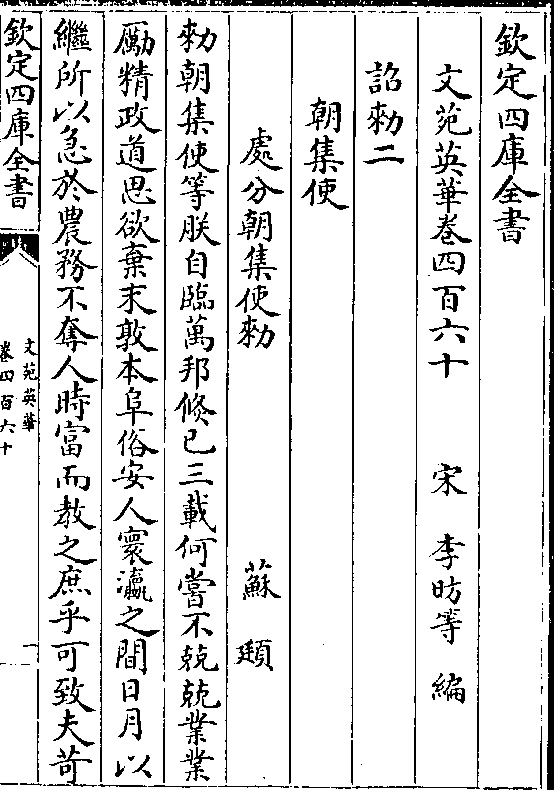 欽定四庫全書
文苑英華卷四百六十
宋 李昉等 編
詔勑二
朝集使
處分朝集使勑
蘇頲
勑朝集使等朕自臨萬邦倐已三載何嘗不兢兢業業
勵精政道思欲棄末敦本阜俗安人寰瀛之間日月以
繼所以急於農務不奪人時富而教之庶乎可致夫苛
欽定四庫全書
文苑英華
卷四百六十
一